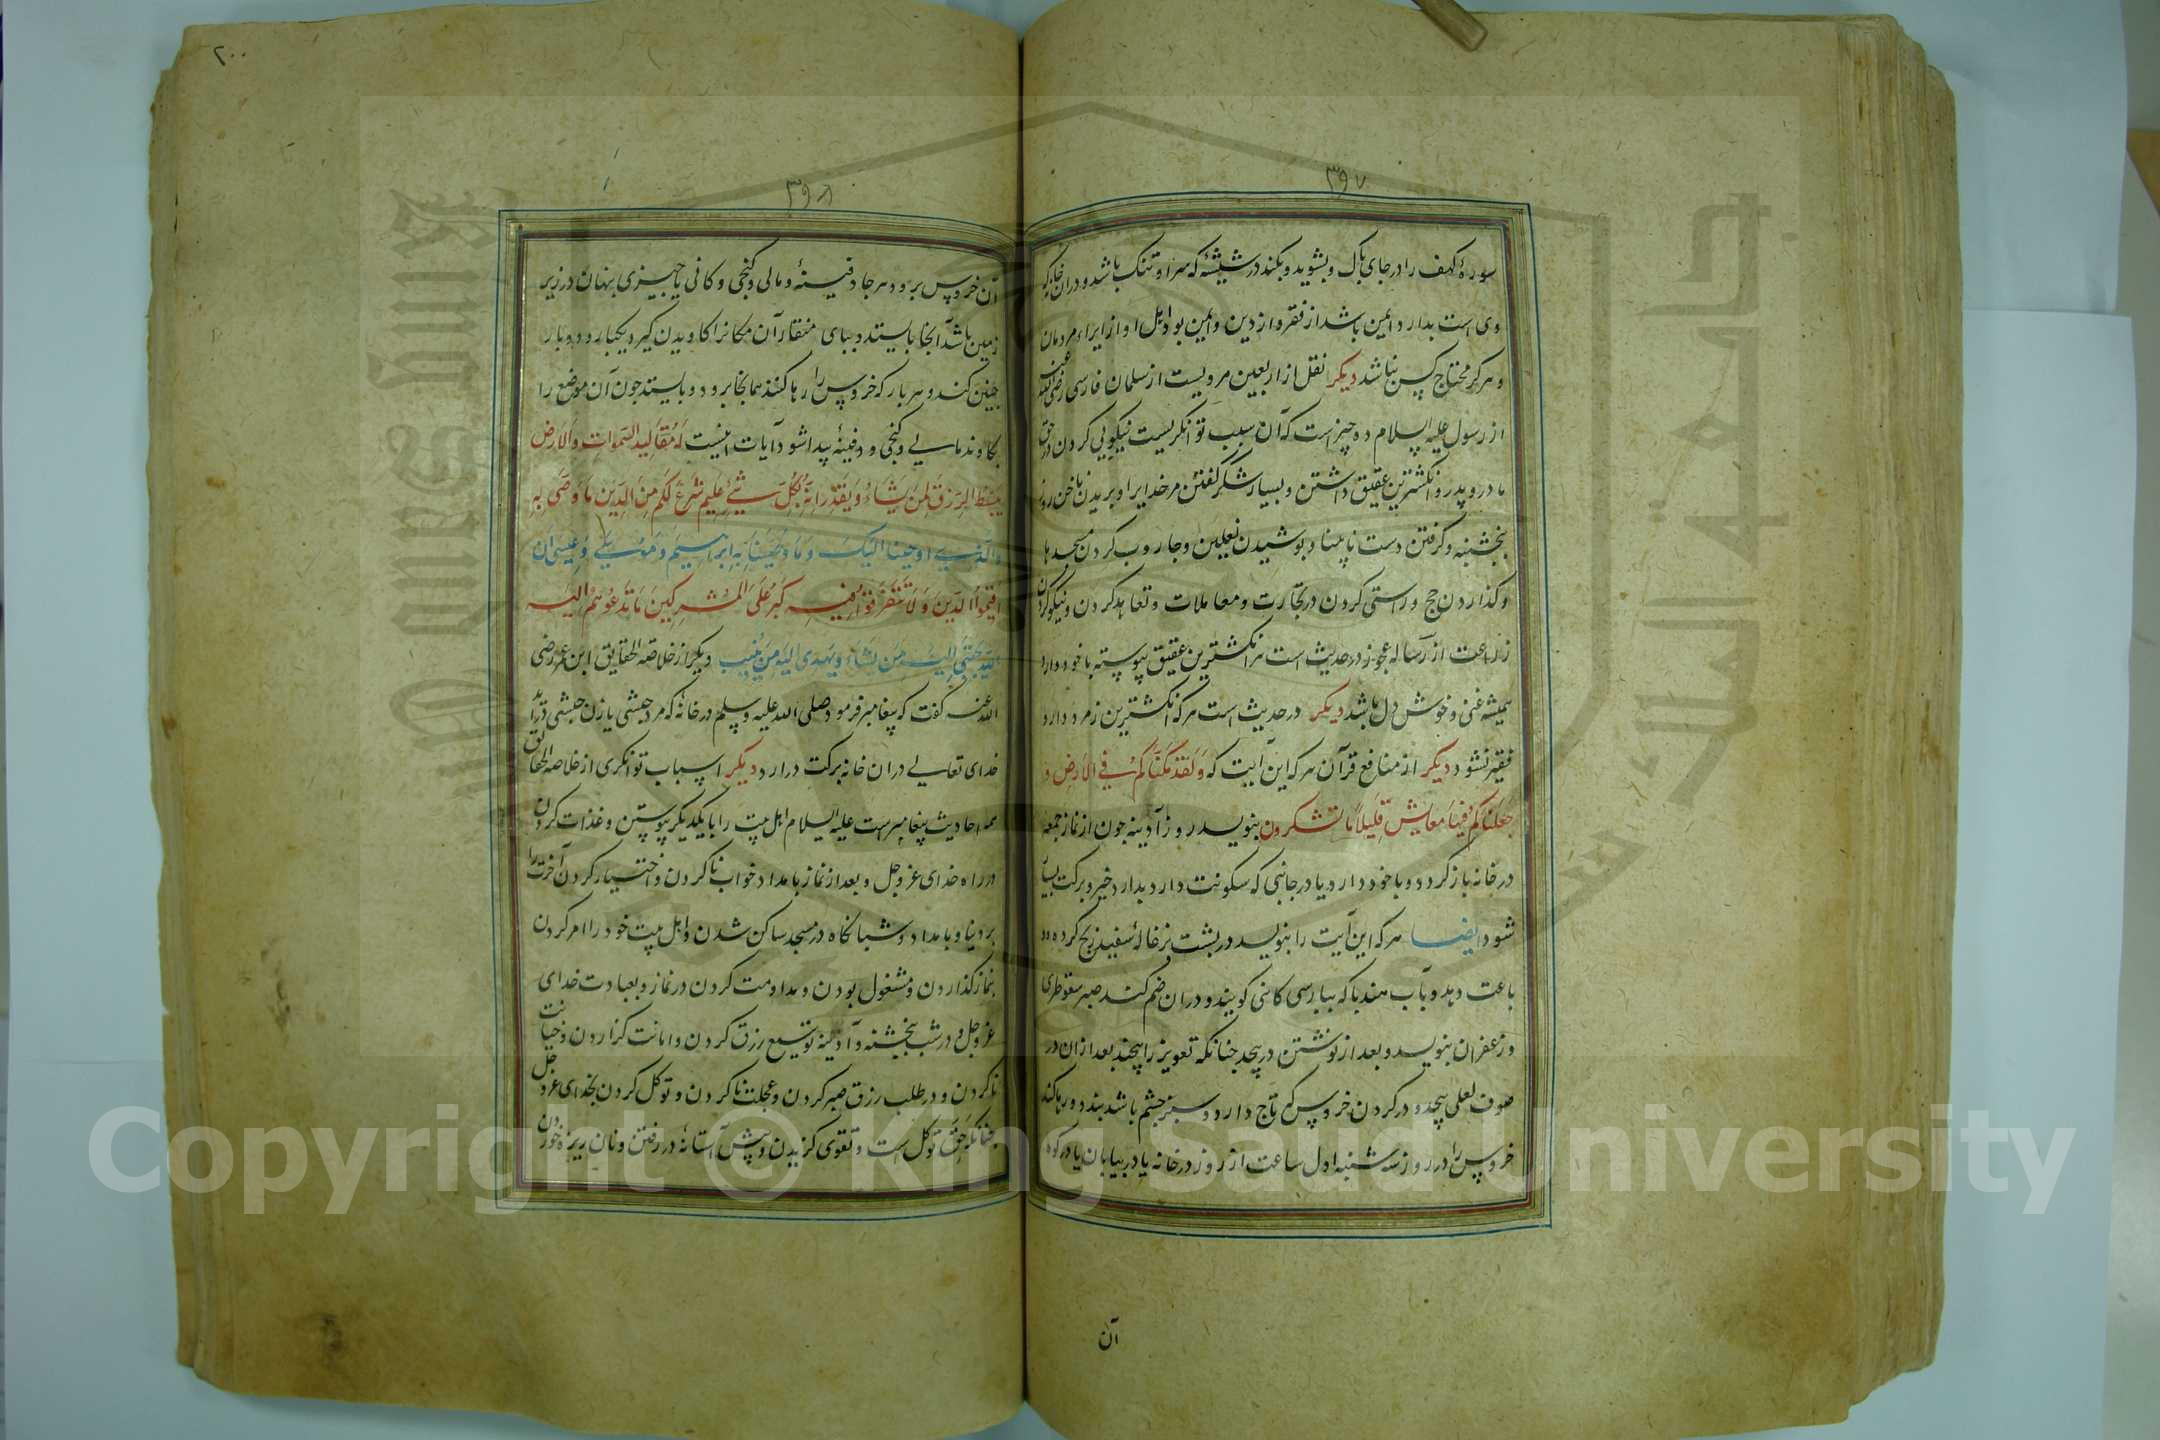 ۳۹۷
سورهٔ کهف را در جای پاک و بشوید و بکند در شیشهٔ که سرا و تنک باشد و دران خانه که
وی است بدارد ایمن باشد از فقر و از دین و ایمن بود اهل او از ایراء مردمان
و هرگز محتاج کس نباشد دیکر نقل از اربعین مرویست از سلمان فارسی رضی الله عنه
از رسول علیه السلام ده چیز است که آن سبب توانکریست نیکویی کردن در حق
مادر و پدر و انکشترین عقیق داشتن و بسیار شکر کفتن مر خدایرا و بریدن ناخن روز
پنجشنبه و کرفتن دست نابینا و پوشیدن نعلین و جاروب کردن مسجدها
و کذاردن حج و راستی کردن در تجارت و معاملات و تعاهد کردن و نیکو کردن
زراعت از رساله عجوز در حدیث است هر انکشترین عقیق پیوسته با خود دارد
همیشه غنی و خوش دل باشد دیکر در حدیث است هر که انکشترین زمرد دارد
فقیر نشود دیکر از منافع قرآن هر که این آیت که وَلَقَدْ مَکَّنَّاکُمْ فِی الْاَرْضِ وَ
جَعَلْنَا لَکُمْ فِیهَا مَعَایِشَ قَلِیلًا مَا تَشْکُرُونَ بنویسد روز آدینه چون از نماز جمعه
در خانه باز کردد و با خود دارد یا در جانبی که سکونت دارد بدارد خیر و برکت بسیار
شود ایضا هر که این آیت را بنویسد در پشت بزغالهٔ سفید ذبح کرده و
باعت دهد و بآب هندبا که بپارسی کاسنی کویند و دران ضم کند صبر سقوطری
و زعفران بنویسد و بعد از نوشتن درپیچد چنانکه تعویذ را پیچند بعد ازان در
صوف لعلی پیچد و در کردن خروس که تاج دارد و سبز چشم باشد بندد و رها کند
خروس را در روز سه شنبه اول ساعت از روز در خانه یا در بیابان یا در کوه
آن
۲۰۰
۳۹۸
آن خروس برود هر جا دفینهٔ و مالی و کنجی و کانی یا چیزی پنهان در زیر
زمین باشد آنجا بایستد و بپای و منقار آن مکانرا کاویدن کیرد یکبار و دوبار
چنین کند و هر بار که خروس را رها کنند همانجا برود و بایستد چون آن موضع را
بکاوند مالی و کنجی و دفینهٔ پیدا شود آیات اینست لَهُ مَقَالِیدُ السَّمٰوَاتِ وَالْاَرْضِ
یَبْسُطُ الرِّزْقَ لِمَنْ یَشَاءُ وَیَقْدِرُ اِنَّهُ بِکُلِّ شَیْءٍ عَلِیمٌ شَرَعَ لَکُمْ مِنَ الدِّینِ مَا وَصّٰی بِهِ
وَالَّذِی اَوْحَیْنَا اِلَیْکَ وَمَا وَصَّیْنَا بِهِ اِبْرَاهِیمَ وَمُوسٰی وَعِیسٰی اَنْ
اَقِیمُوا الدِّینَ وَلَا تَتَفَرَّقُوا فِیهِ کَبُرَ عَلَی الْمُشْرِکِینَ مَا تَدْعُوهُمْ اِلَیْهِ
اَللّٰهُ یَجْتَبِی اِلَیْهِ مَنْ یَشَاءُ وَیَهْدِی اِلَیْهِ مَنْ یُنِیبُ دیکر از خلاصه الحقایق ابن عمر رضی
الله عنه کفت که پیغامبر فرمود صلی الله علیه وسلم در خانه که مرد حبشی یا زن حبشی درآید
خدای تعالی دران خانه برکت درارد دیکر اسباب توانکری از خلاصه الحقایق
همه احادیث پیغامبر است علیه السلام اهل بیت را بایکدیکر پیوستن و غذات کردن
در راه خدای عزوجل و بعد از نماز بامداد خواب ناکردن و اختیار کردن آخرت را
بر دنیا و بامداد و شبانکاه در مسجد ساکن شدن و اهل بیت خود را امر کردن
بنماز کذاردن و مشغول بودن و مداومت کردن در نماز و بعبادت خدای
عزوجل و در شب پنجشنبه و آدینه توسیع رزق کردن و امانت کزاردن و خیانت
ناکردن و در طلب رزق صبر کردن و عجلت ناکردن و توکل کردن بخدای عزوجل
چنانکه حق توکل است و تقوی کزیدن و پیش آستانه در رفتن و نان ریزه خوردن
Copyright © King Saud University